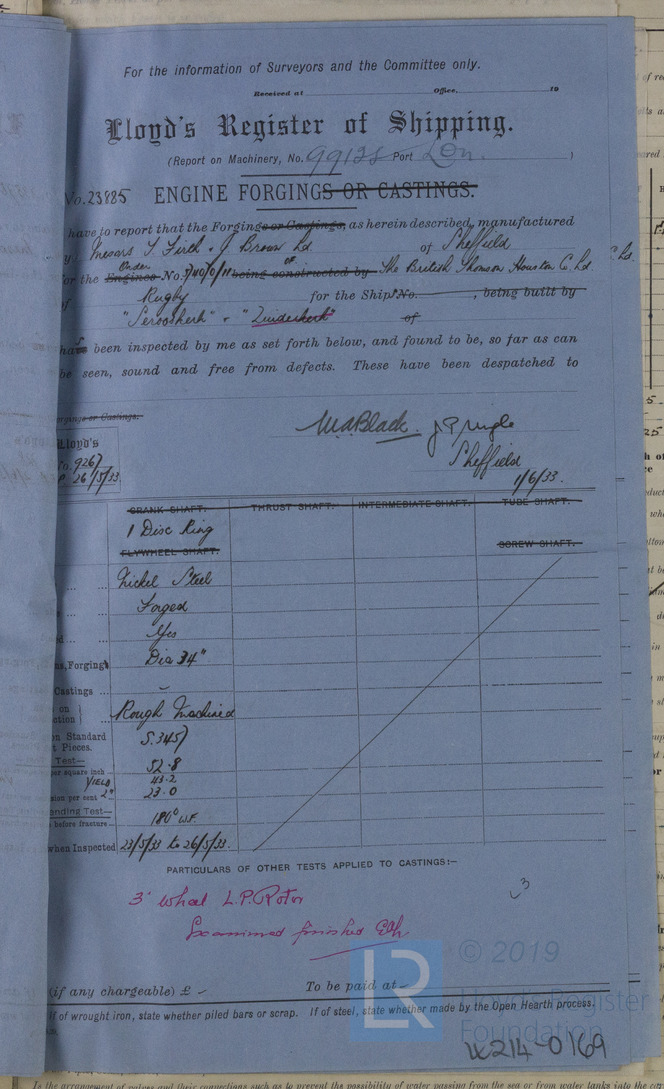 For the information of Surveyors and the Committee only.
Received at Office, 19
Lloyd's Register of Shipping.
(Report on Machinery, No. 99128 Port Lon. )
No. 23885 ENGINE FORGINGS OR CASTINGS.
have to report that the Forgings or Castings, as herein described, manufactured
Messrs T. Firth & J. Brown Ld. of Sheffield
for the Engines Order No. being constructed by of The British Thomson Houston C. Ld.
Rugby for the Ship No. , being built by
"Seroskerk" & "Zuiderkerk" of
been inspected by me as set forth below, and found to be, so far as can
be seen, sound and free from defects. These have been despatched to
or Castings.
W.A. Black. J Pringle
Sheffield
1/6/33.
Lloyd's
No. 9267
26/5/33
CRANK SHAFT. THRUST SHAFT. INTERMEDIATE SHAFT. TUBE SHAFT.
1 Disc Ring
FLYWHEEL SHAFT. SCREW SHAFT.
Nickel Steel
Forged
Yes
Forging Dia 34"
Castings ... –
Rough Machined
Standard S.3457
Pieces.
Test—
per square inch 52.8
YIELD 43.2
per cent 2" 23.0
Test—
before fracture 180° W.F.
when Inspected 23/5/33 to 26/5/33.
PARTICULARS OF OTHER TESTS APPLIED TO CASTINGS:—
3rd wheel L.P. Rotor
3
Examined finished
LR © 2019
(if any chargeable) £ – To be paid at –
Lloyd's Register
If of wrought iron, state whether piled bars or scrap. If of steel, state whether made by the Open Hearth process.
Foundation
W214-0169
is the arrangement of valves and their connections such as to prevent the possibility of water passing from the sea or from water tanks into the